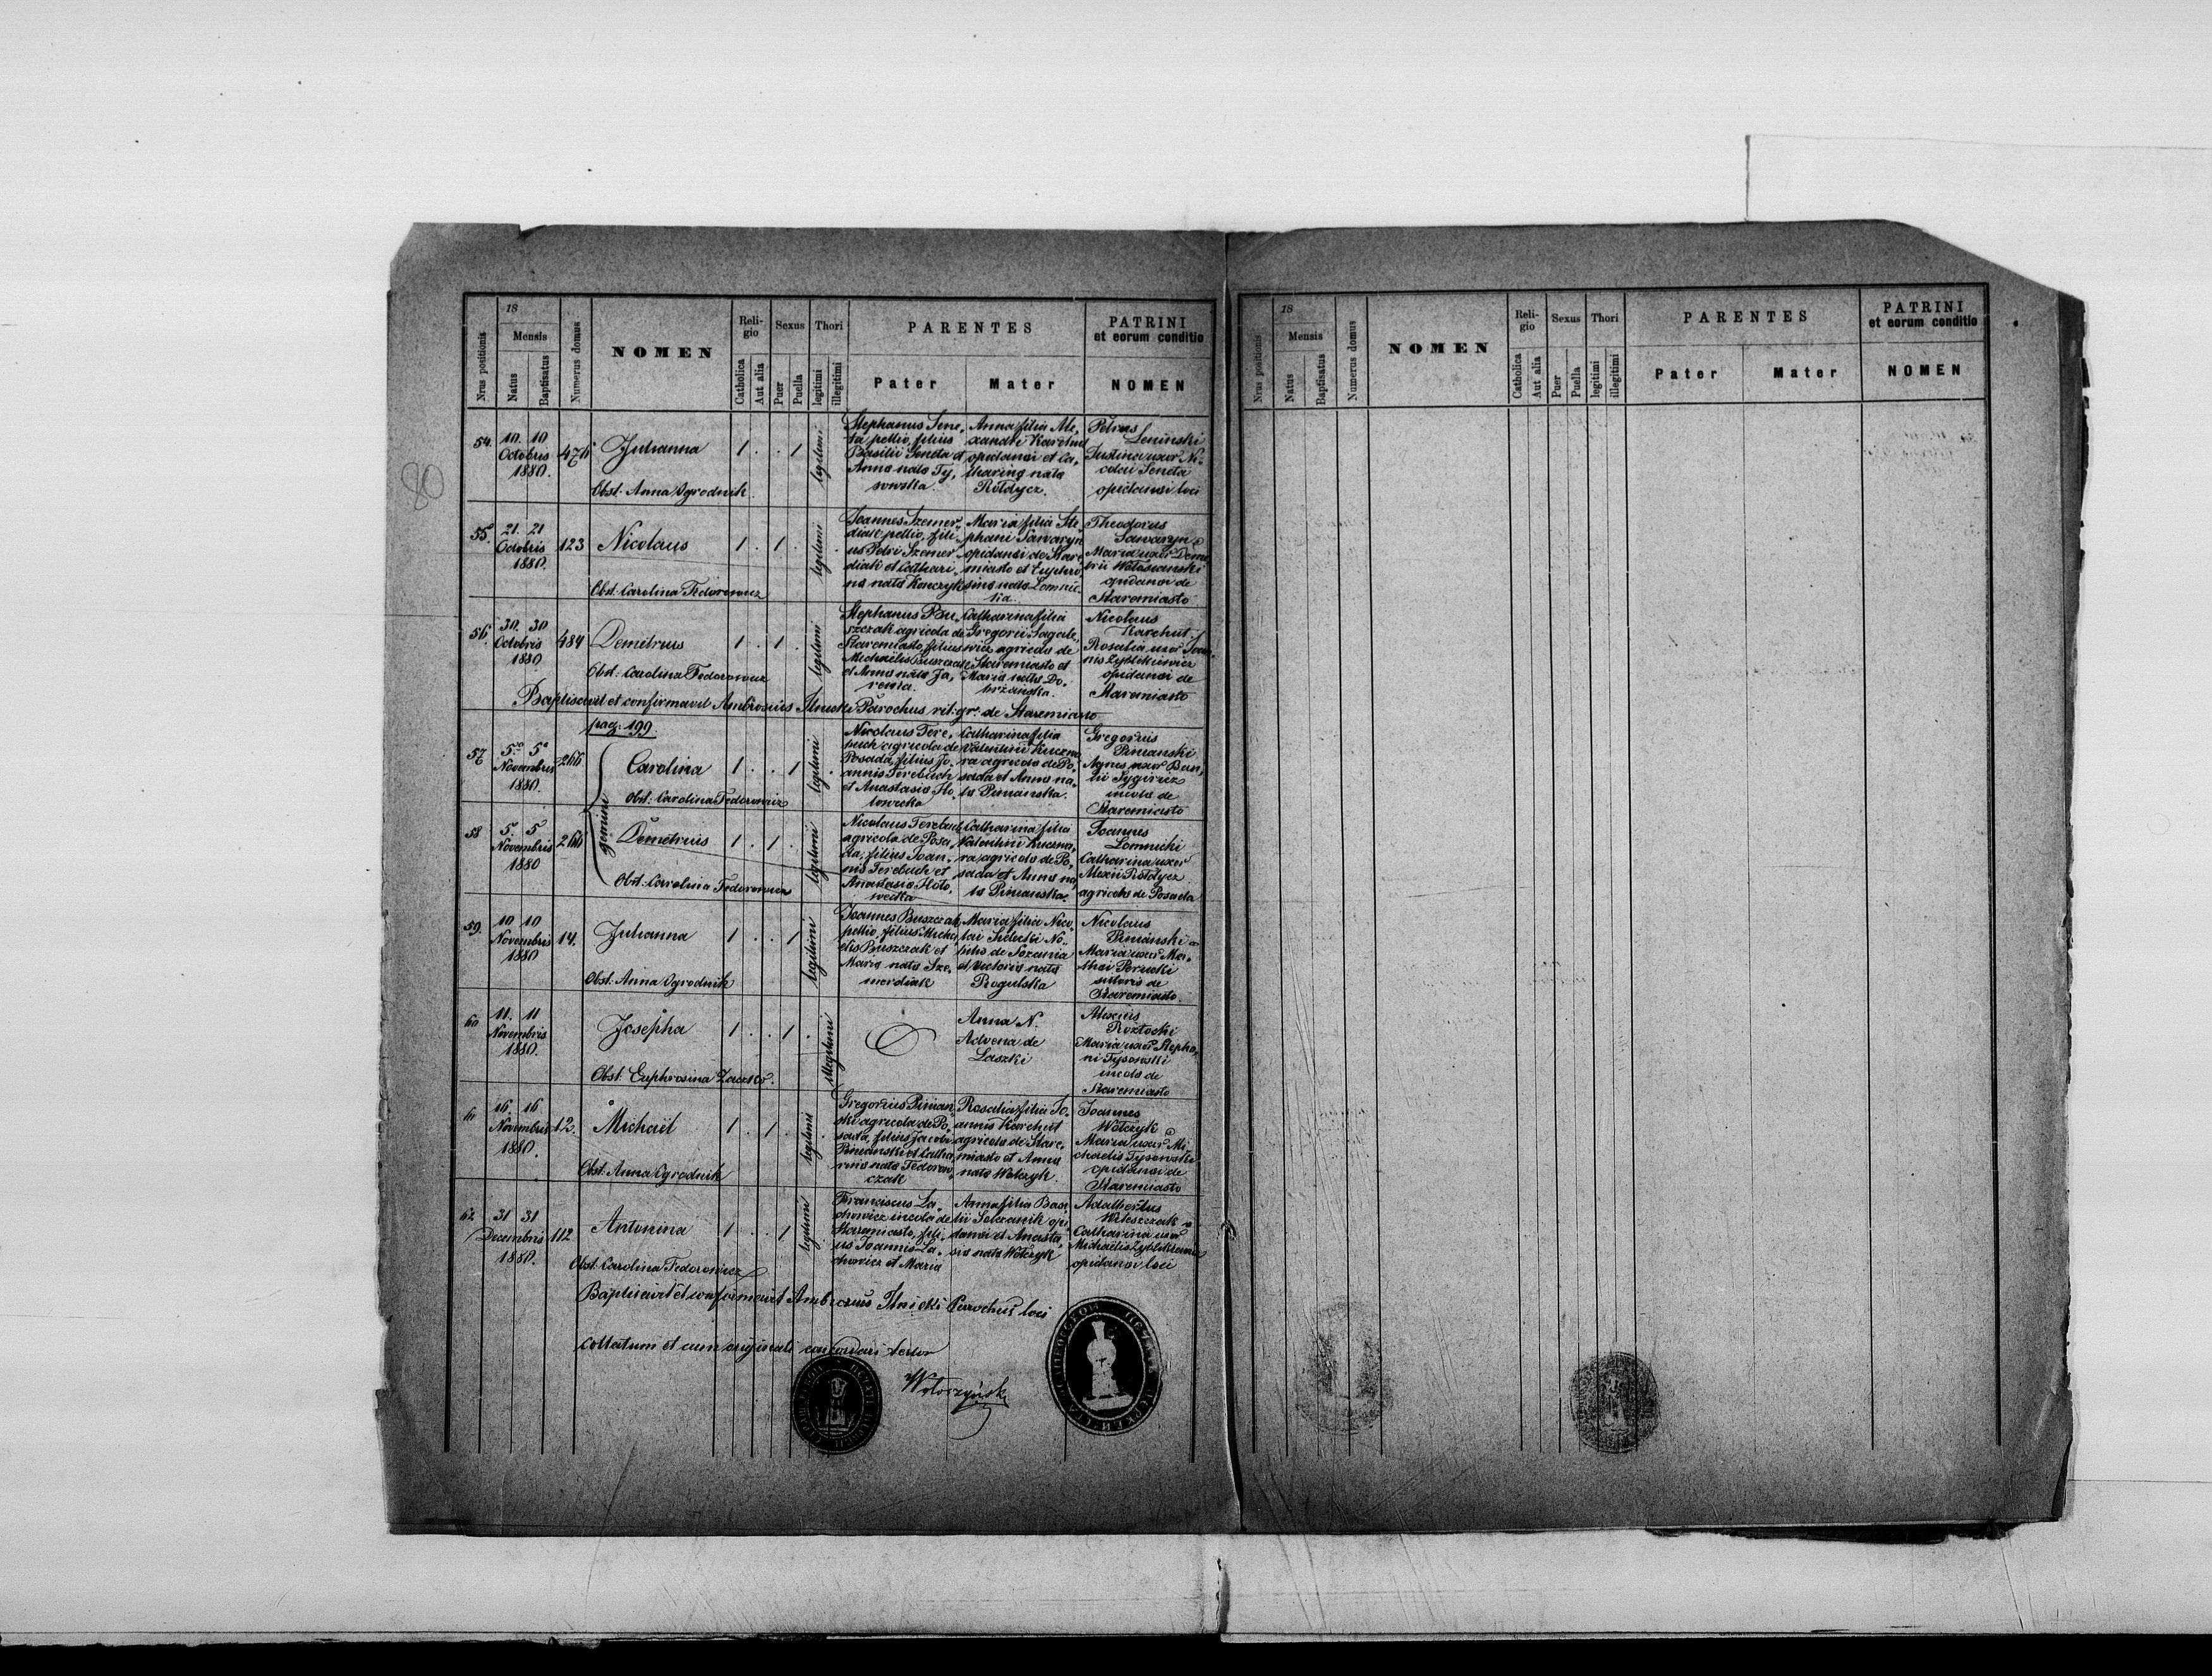 80
18
Mensis
Nrus positionis
Natus
Baptisatus
Numerus domus
NOMEN
Reli-
gio
Catholica
Aut alia
Sexus
Puer
Puella
Thori
legitimi
illegitimi
PARENTES
Pater
Mater
PATRINI
et eorum conditio
NOMEN
54.
10. 10
Octobris
1880.
476
Julianna
1 . . 1
legitimi
Obst. Anna Ogrodnik
Stephanus Sene,
ta pellio, filius
Basilii Seneta et
Anna nata Ty,
sowska.
Anna filia Ale,
xandri Karchut
opidansi et Ca,
tharina nata
Rołdycz.
Petrus
Leninski
Justina uxor Ni-
colai Seneta
opidansi loci
55.
21. 21
Octobris
1880.
123
Nicolaus
1 . 1 .
legitimi
Obst. Carolina Fedorowicz
Joannes Szemer-
diak pellio, fili-
us Petri Szemer-
diak et Cathari-
na nata Konczyk
Maria filia Ste,
phani Sawaryn
opidansi de Stare
miasto et Euphro,
sina nata Łomnic-
ka.
Theodorus
Sawaryn
Maria uxor Deme
trii Wołosianski
opidansi de
Staremiasto
56.
30. 30
Octobris
1880
484
Demetrius
1 . 1 .
legitimi
Obst: Carolina Fedorowicz
Stephanus Bu-
szczak agricola de
Staremiasto, filius
Michaelis Buszczak
et Anna nata Ja,
rema.
Catharina filia
Gregorii Sagale,
wicz agricola de
Staremiasto et
Maria nata Do-
brzanska.
Nicolaus
Karchut
Rosalia uxor Joan-
nis Zyblikiewicz
opidansi de
Staremiasto
Baptisavit et confirmavit Ambrosius Ilnicki Parochus rit: gr: de Staremiasto
pag: 199.
57
5. 5
Novembris
1880.
266
gemini
Carolina
1 . . 1 .
legitimi
Obst: Carolina Fedorowicz
Nicolaus Tere,
buch agricola de
Posada, filius Jo-
annis Terebuch
et Anastasia Ho-
łowecka
Catharina filia
Valentini Kuczma
ra agricola de Po,
sada et Anna na-
ta Pinianska.
Gregorius
Pinianski
Agnes uxor Basi,
lii
incola de
Staremiasto
58
5. 5
Novembris
1880
266
Demetrius
1 . 1 .
legitimi
Obst: Carolina Fedorowicz
Nicolaus Terebuch
agricola de Posa,
da, filius Joan-
nis Terebuch et
Anastasia Hoło,
wecka
Catharina filia
Valentini Kuczma,
ra agricola de Po,
sada et Anna na,
ta Pinianska.
Joannes
Łomnicki
Catharina uxor
Alexii Rołdycz
agricola de Posada
59.
10 10
Novembris
1880
14.
Julianna
1 . . 1
legitimi
Obst: Anna Ogrodnik
Joannes Buszczak
pellio, filius Micha,
elis Buszczak et
Maria nata Sze,
merdiak
Maria filia Nico,
lai Sielecki No-
bilis de Sozania
et Victoria nata
Rogulska
Nicolaus
Pinianski
Maria uxor Ma-
thei Perucki
sutoris de
Staremiasto.
60
11. 11
Novembris
1880.
Josepha
1 . . 1 .
illegitimi
Obst: Euphrosina
Anna N.
Advena de
Laszki
Alexius
Roztocki
Maria uxor Stepha,
ni Tysowski
incola de
Staremiasto
61
16. 16
Novembris
1880.
12.
Michaël
1 . 1 .
legitimi
Obst. Anna Ogrodnik
Gregorius Pinian,
ski agricola de Po-
sada, filius Jacobi
Pinianski et Catha
rina nata Fedorow
czak
Rosalia filia Jo-
annis Karchut
agricola de Stare-
miasto et Anna
nata Wołczyk.
Joannes
Wołczyk
Maria uxor Mi
chaelis Tysowski
opidansi de
Staremiasto
62
31 31
Decembris
1880.
112
Antonina
1 . . 1
legitimi
Obst: Carolina Fedorowicz
Franciscus La-
chowicz incola de
Staremiasto, fili-
us Joannis La-
chowicz et Maria
Anna filia Basi
lii Solczanik opi
dansi et Anasta,
sia nata Wołczyk
Adalbertus
Witeszczak
Catharina uxor
Michaelis Zyblikiewicz
opidansi loci
Baptisavit et confirmavit Ambrosius Ilnicki Parochus loci
Collatum et cum originali concordari testor
18
Mensis
Nrus positionis
Natus
Baptisatus
Numerus domus
NOMEN
Reli-
gio
Catholica
Aut alia
Sexus
Puer
Puella
Thori
legitimi
illegitimi
PARENTES
Pater
Mater
PATRINI
et eorum conditio
NOMEN